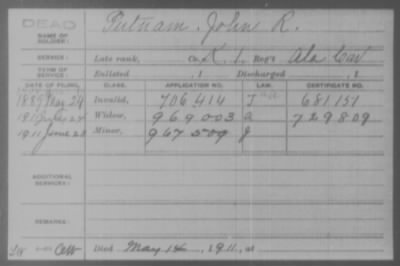 DEAD
NAME OF SOLDIER: Putnam, John R.
SERVICE: Late rank, Co. K, 1, Reg't Ala Cav
TERM OF SERVICE: Enlisted , 1 Discharged , 1
DATE OF FILING. CLASS. APPLICATION NO. LAW. CERTIFICATE NO.
1889 May 24 Invalid, 706414 J 681151
1911 24 Widow, 969003 a 729809
1911 June 20 Minor, 967509 J
ADDITIONAL SERVICES:
REMARKS:
Died May 14, 1911, at